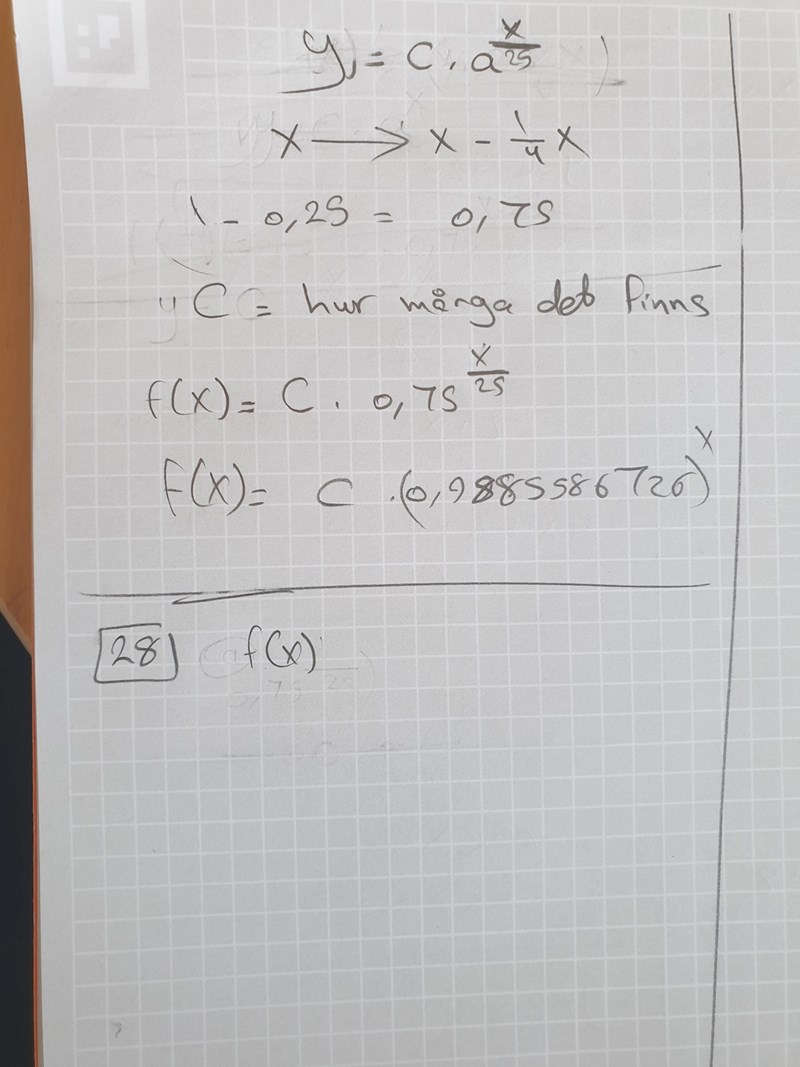 y = C · a^(x/25)
x → x - 1/4 x
1 - 0,25 = 0,75
C = hur många det finns
f(x) = C · 0,75^(x/25)
f(x) = C · (0,9885586726)^x
28 f(x)